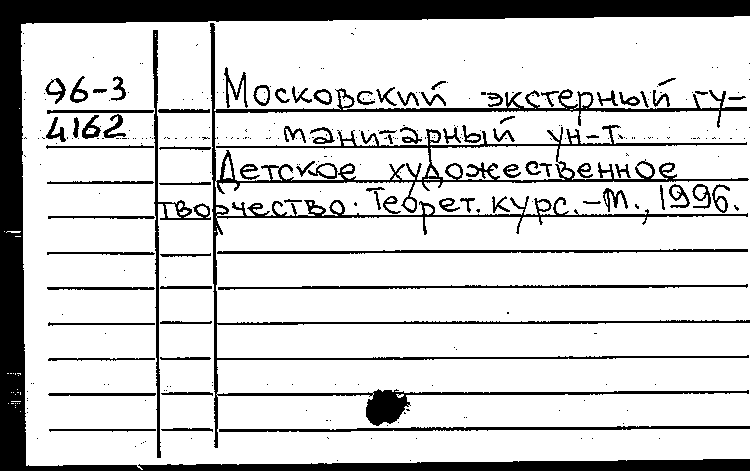 96-3 Московский экстерный гу-
4162 манитарный ун-т.
Детское художественное
творчество: Теорет. курс.-М., 1996.